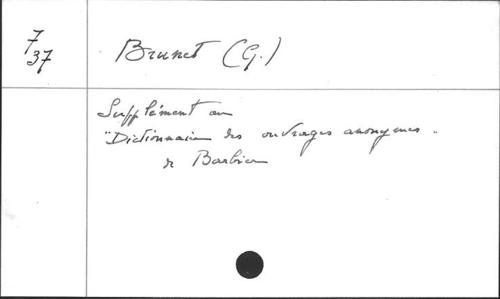 7
37
Brunet (G.)
Supplément au
"Dictionnaire des ouvrages anonymes"
de Barbier